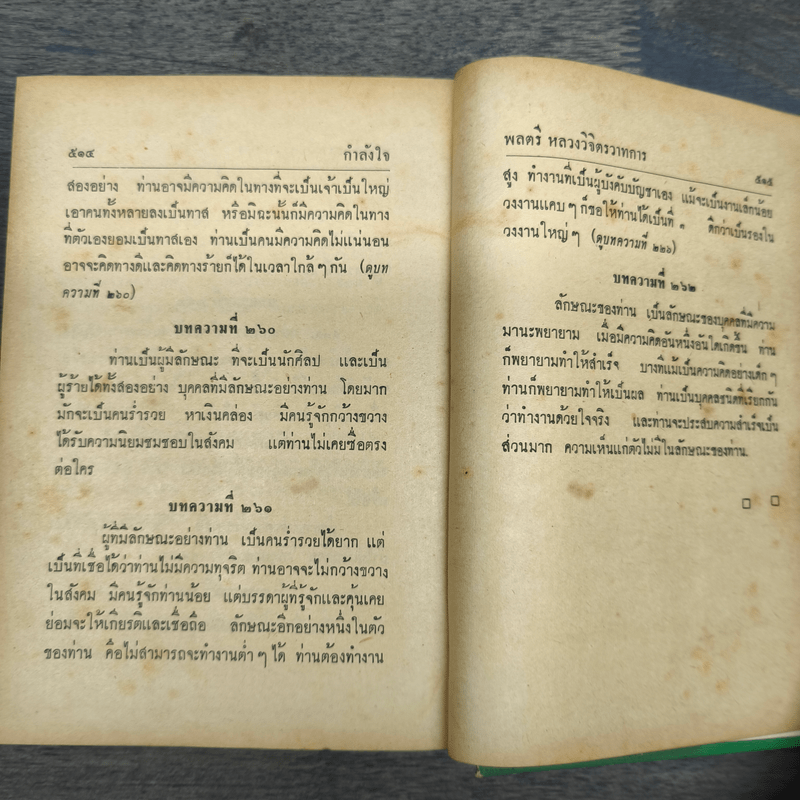 ๕๑๔ กำลังใจ
สองอย่าง ท่านอาจมีความคิดในทางที่จะเป็นเจ้าเป็นใหญ่
เอาคนทั้งหลายลงเป็นทาส หรือมิฉะนั้นก็มีความคิดในทาง
ที่ตัวเองยอมเป็นทาสเอง ท่านเป็นคนมีความคิดไม่แน่นอน
อาจจะคิดทางดีและคิดทางร้ายก็ได้ในเวลาใกล้ ๆ กัน (ดูบท
ความที่ ๒๖๐)
บทความที่ ๒๖๐
ท่านเป็นผู้มีลักษณะ ที่จะเป็นนักศิลป และเป็น
ผู้ร้ายได้ทั้งสองอย่าง บุคคลที่มีลักษณะอย่างท่าน โดยมาก
มักจะเป็นคนร่ำรวย หาเงินคล่อง มีคนรู้จักกว้างขวาง
ได้รับความนิยมชมชอบในสังคม แต่ท่านไม่เคยซื่อตรง
ต่อใคร
บทความที่ ๒๖๑
ผู้ที่มีลักษณะอย่างท่าน เป็นคนร่ำรวยได้ยาก แต่
เป็นที่เชื่อได้ว่าท่านไม่มีความทุจริต ท่านอาจจะไม่กว้างขวาง
ในสังคม มีคนรู้จักท่านน้อย แต่บรรดาผู้ที่รู้จักและคุ้นเคย
ย่อมจะให้เกียรติและเชื่อถือ ลักษณะอีกอย่างหนึ่งในตัว
ของท่าน คือไม่สามารถจะทำงานต่ำ ๆ ได้ ท่านต้องทำงาน
พลตรี หลวงวิจิตรวาทการ ๕๑๕
สูง ทำงานที่เป็นผู้บังคับบัญชาเอง แม้จะเป็นงานเล็กน้อย
วงงานแคบ ๆ ก็ขอให้ท่านได้เป็นที่ ๑ ดีกว่าเป็นรองใน
วงงานใหญ่ ๆ (ดูบทความที่ ๒๒๖)
บทความที่ ๒๖๒
ลักษณะของท่าน เป็นลักษณะของบุคคลที่มีความ
มานะพยายาม เมื่อมีความคิดอันหนึ่งอันใดเกิดขึ้น ท่าน
ก็พยายามทำให้สำเร็จ บางทีแม้เป็นความคิดอย่างเด็ก ๆ
ท่านก็พยายามทำให้เป็นผล ท่านเป็นบุคคลชนิดที่เรียกกัน
ว่าทำงานด้วยใจจริง และท่านจะประสบความสำเร็จเป็น
ส่วนมาก ความเห็นแก่ตัวไม่มีในลักษณะของท่าน.